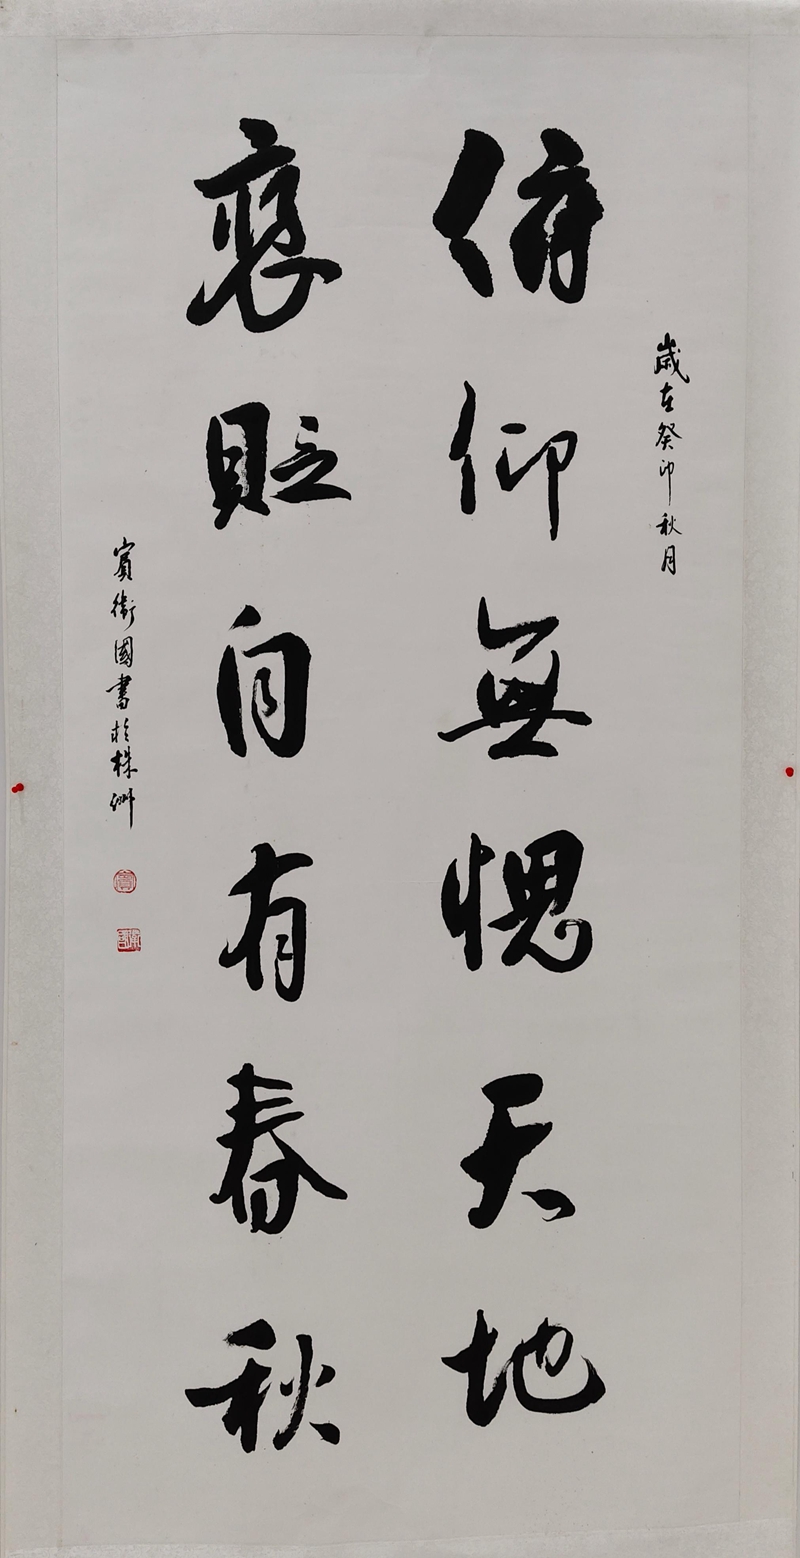 歲在癸卯秋月
俯仰無愧天地
褒貶自有春秋
賓衛國書於株洲